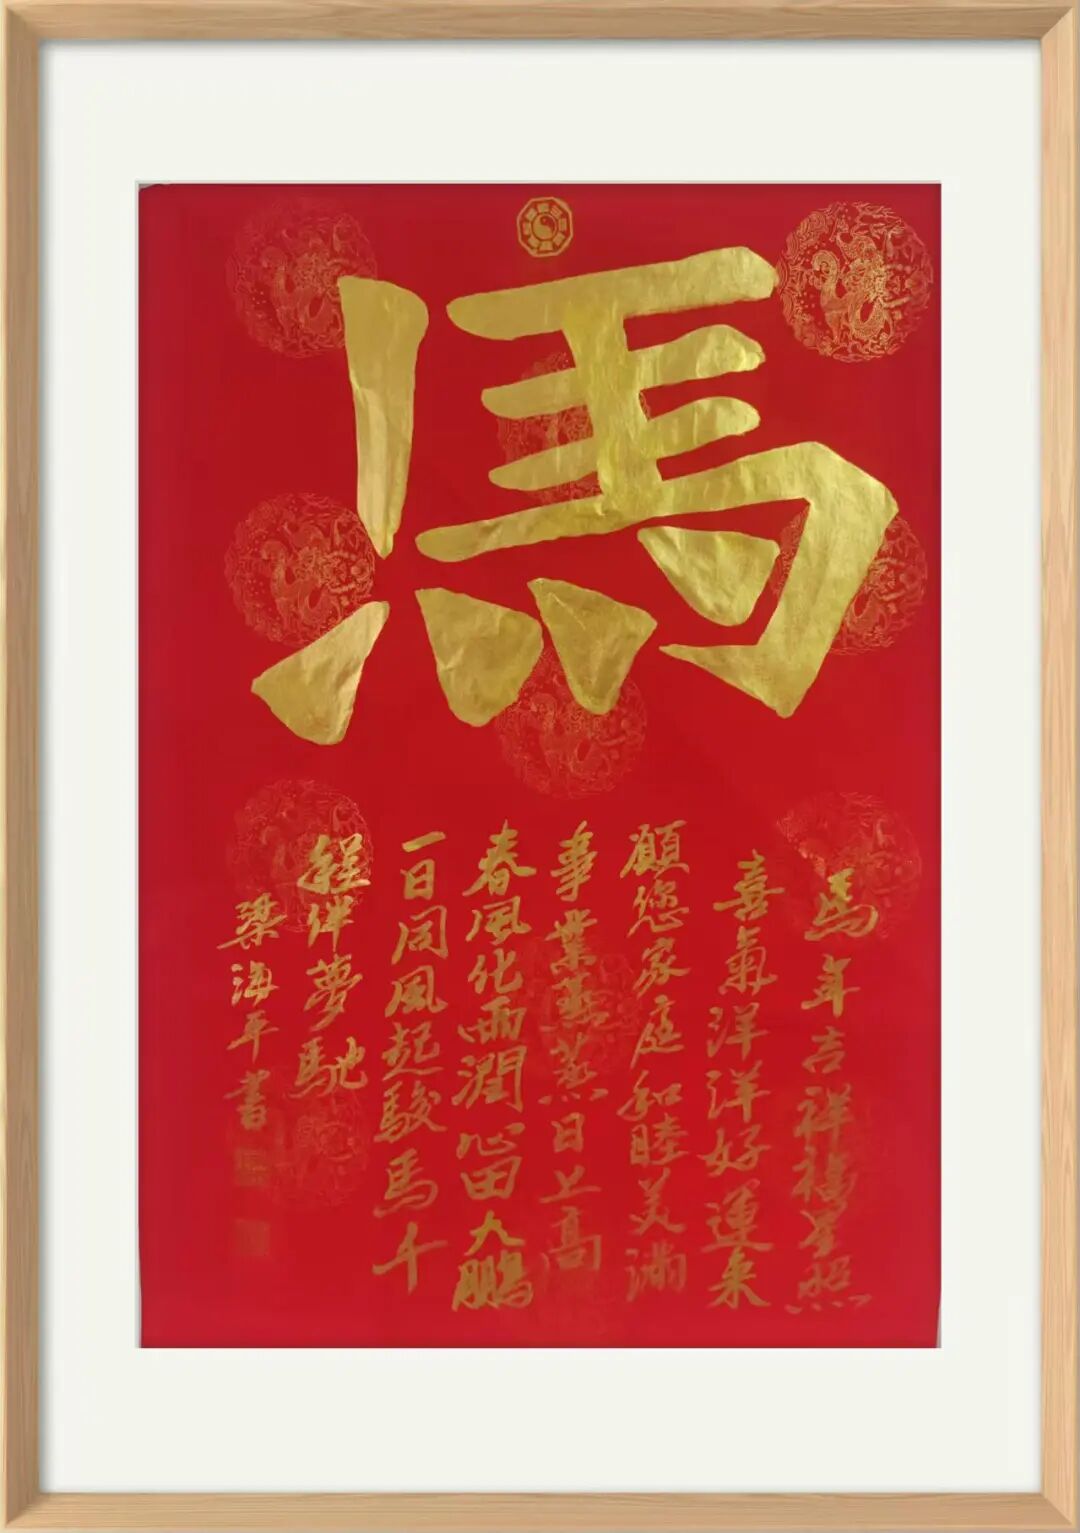 馬
馬年吉祥福星照
喜氣洋洋好運来
願您家庭和睦美满
事業蒸蒸日上高
春風化雨潤心田大鵬
一日同風起駿馬千
程伴夢馳
梁海平書